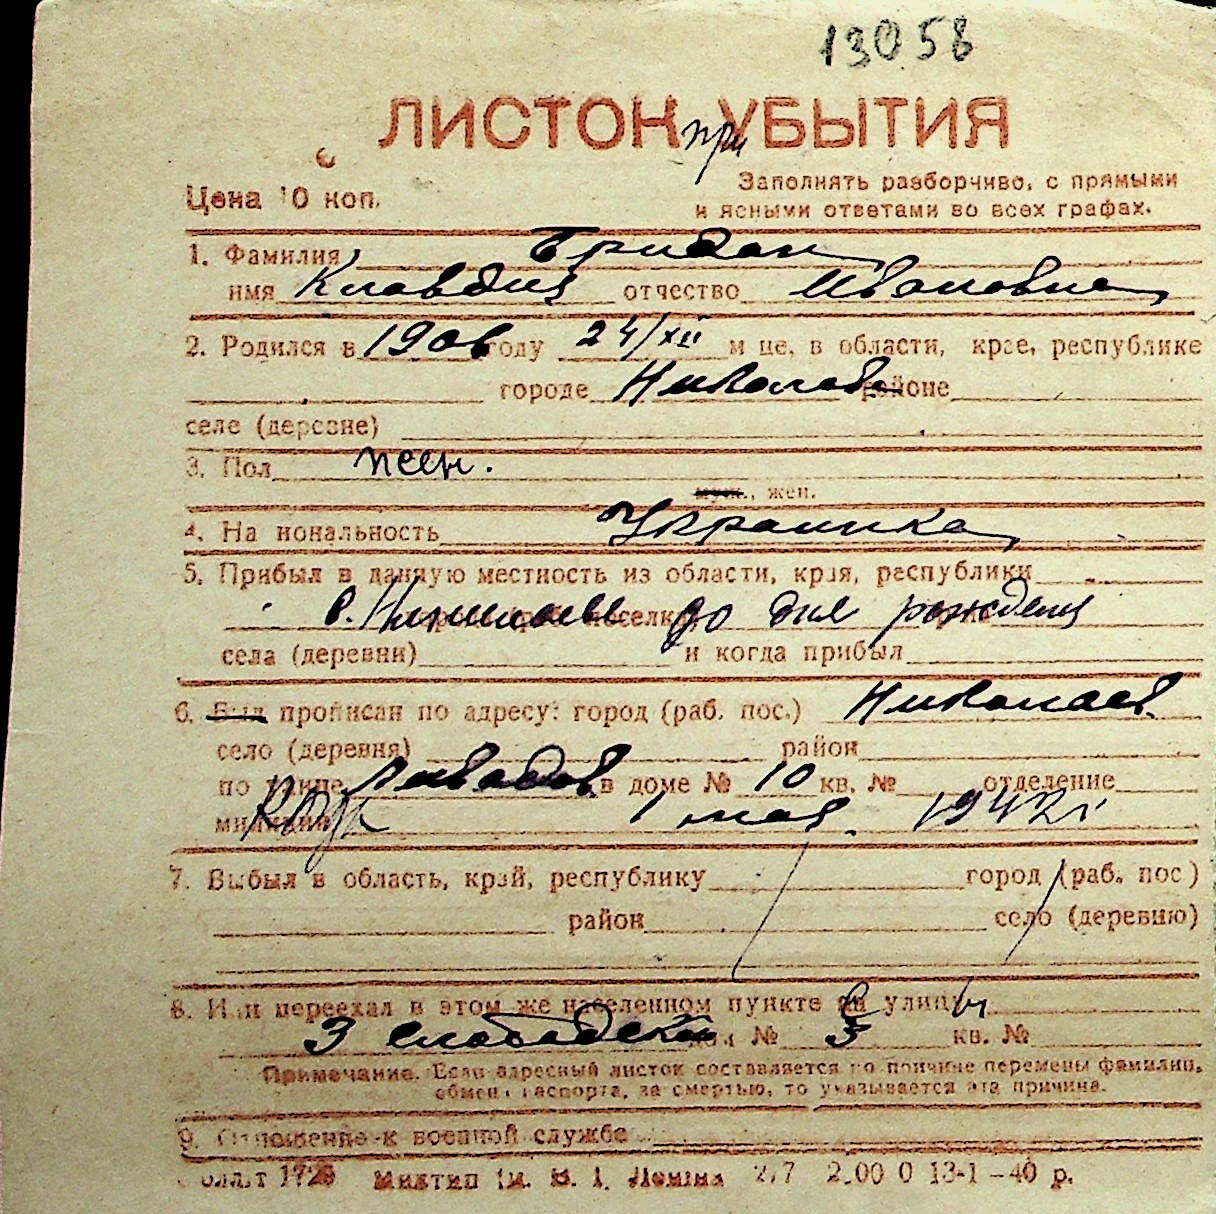 13058
ЛИСТОК при УБЫТИЯ
Цена 10 коп.
Заполнять разборчиво, с прямыми
и ясными ответами во всех графах.
1. Фамилия Гридан
имя Клавдия отчество Ивановна
2. Родился в 1906 году 24/XII м-це, в области, крае, республике
городе Николаев районе
селе (деревне)
3. Пол жен.
муж., жен.
4. Национальность Украинка
5. Прибыл в данную местность из области, края, республики
в. Николаеве поселка до дня рождения
села (деревни) и когда прибыл
6. Был прописан по адресу: город (раб. пос.) Николаев.
село (деревня) район
по улице в доме № 10 кв. № отделение
милиции 1 мая. 1942 г.
7. Выбыл в область, край, республику город (раб. пос)
район село (деревню)
8. Или переехал в этом же населенном пункте на улицу
3 Слободская дом № 5 кв. №
Примечание. Если адресный листок составляется по причине перемены фамилии,
обмена паспорта, за смертью, то указывается эта причина.
9. Отношение к военной службе
1728 Миктип ім. В. І. Леніна 2.00 0 13-1-40 р.